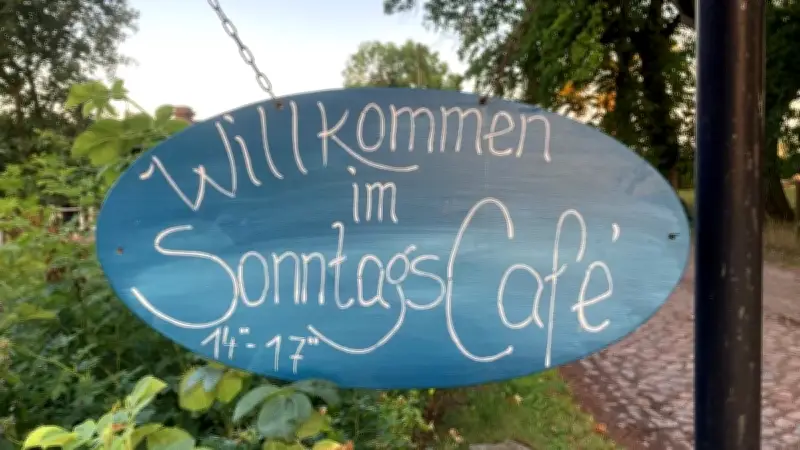 Willkommen
im
SonntagsCafé
14°°-17°°